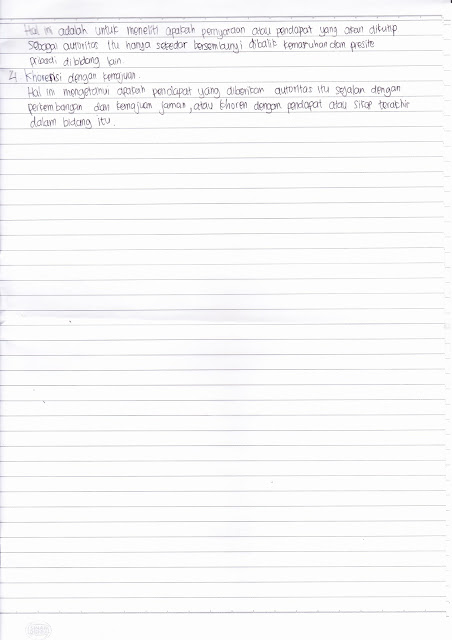 Hal ini adalah untuk meneliti apakah pernyataan atau pendapat yang akan dikutip
sebagai autoritas itu hanya sekedar bersembunyi dibalik kemasyhuran dan prestise
pribadi dibidang lain.
4. Khorensi dengan kemajuan.
Hal ini mengetahui apakah pendapat yang diberikan autoritas itu sejalan dengan
perkembangan dan kemajuan jaman, atau khoren dengan pendapat atau sikap terakhir
dalam bidang itu.